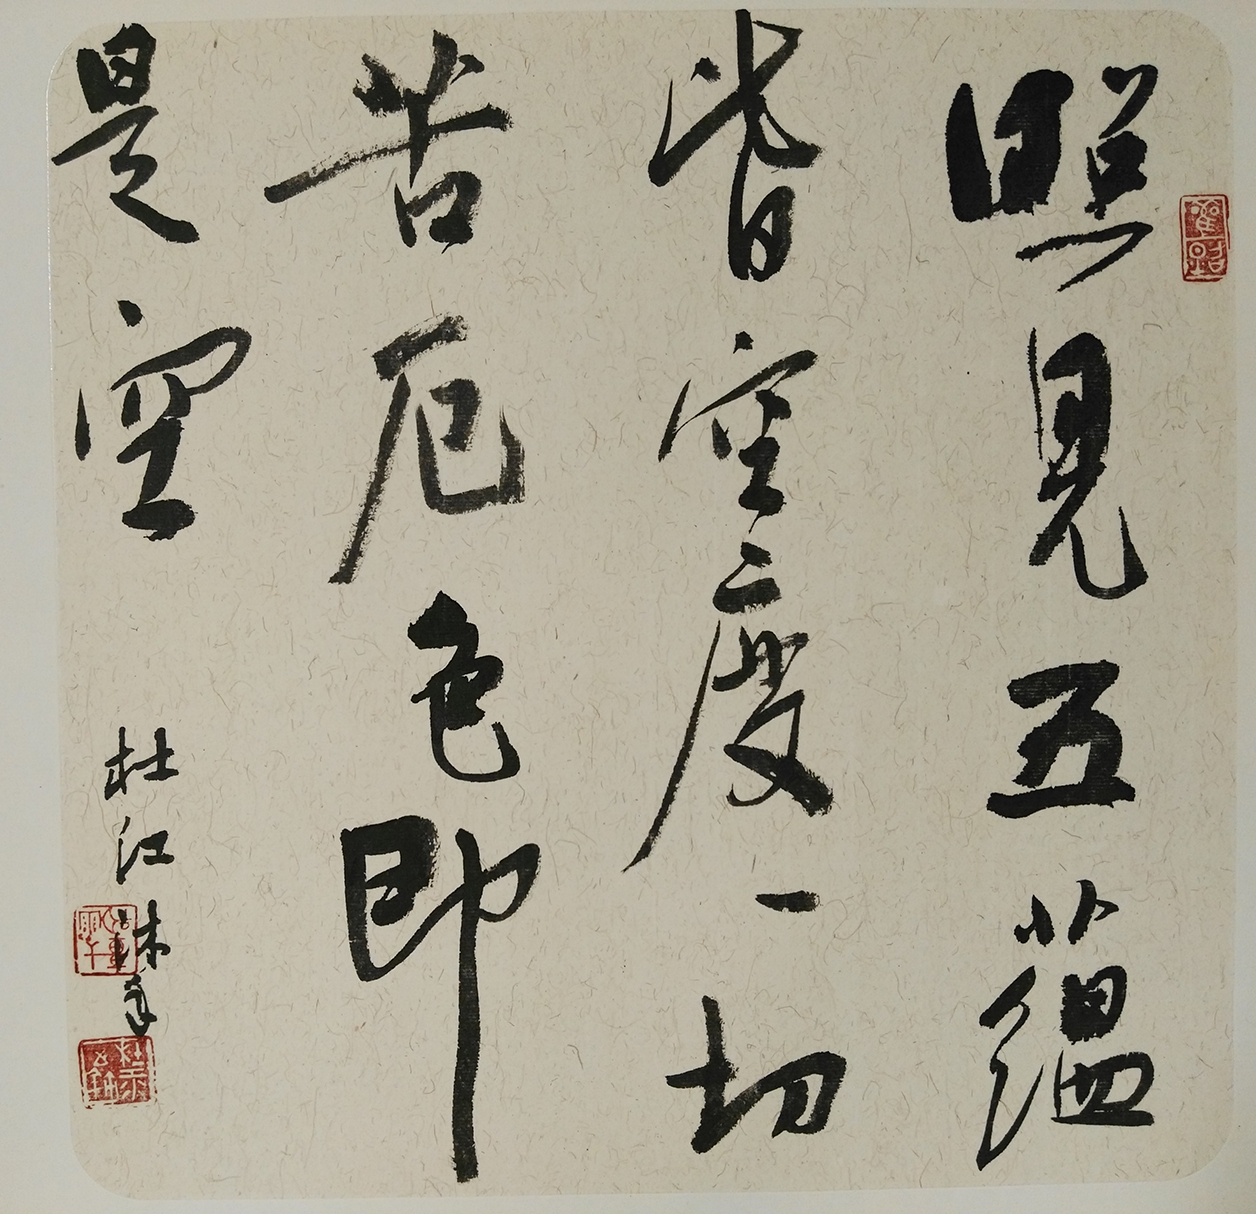 照見五蘊
皆空度一切
苦厄色即
是空
杜江